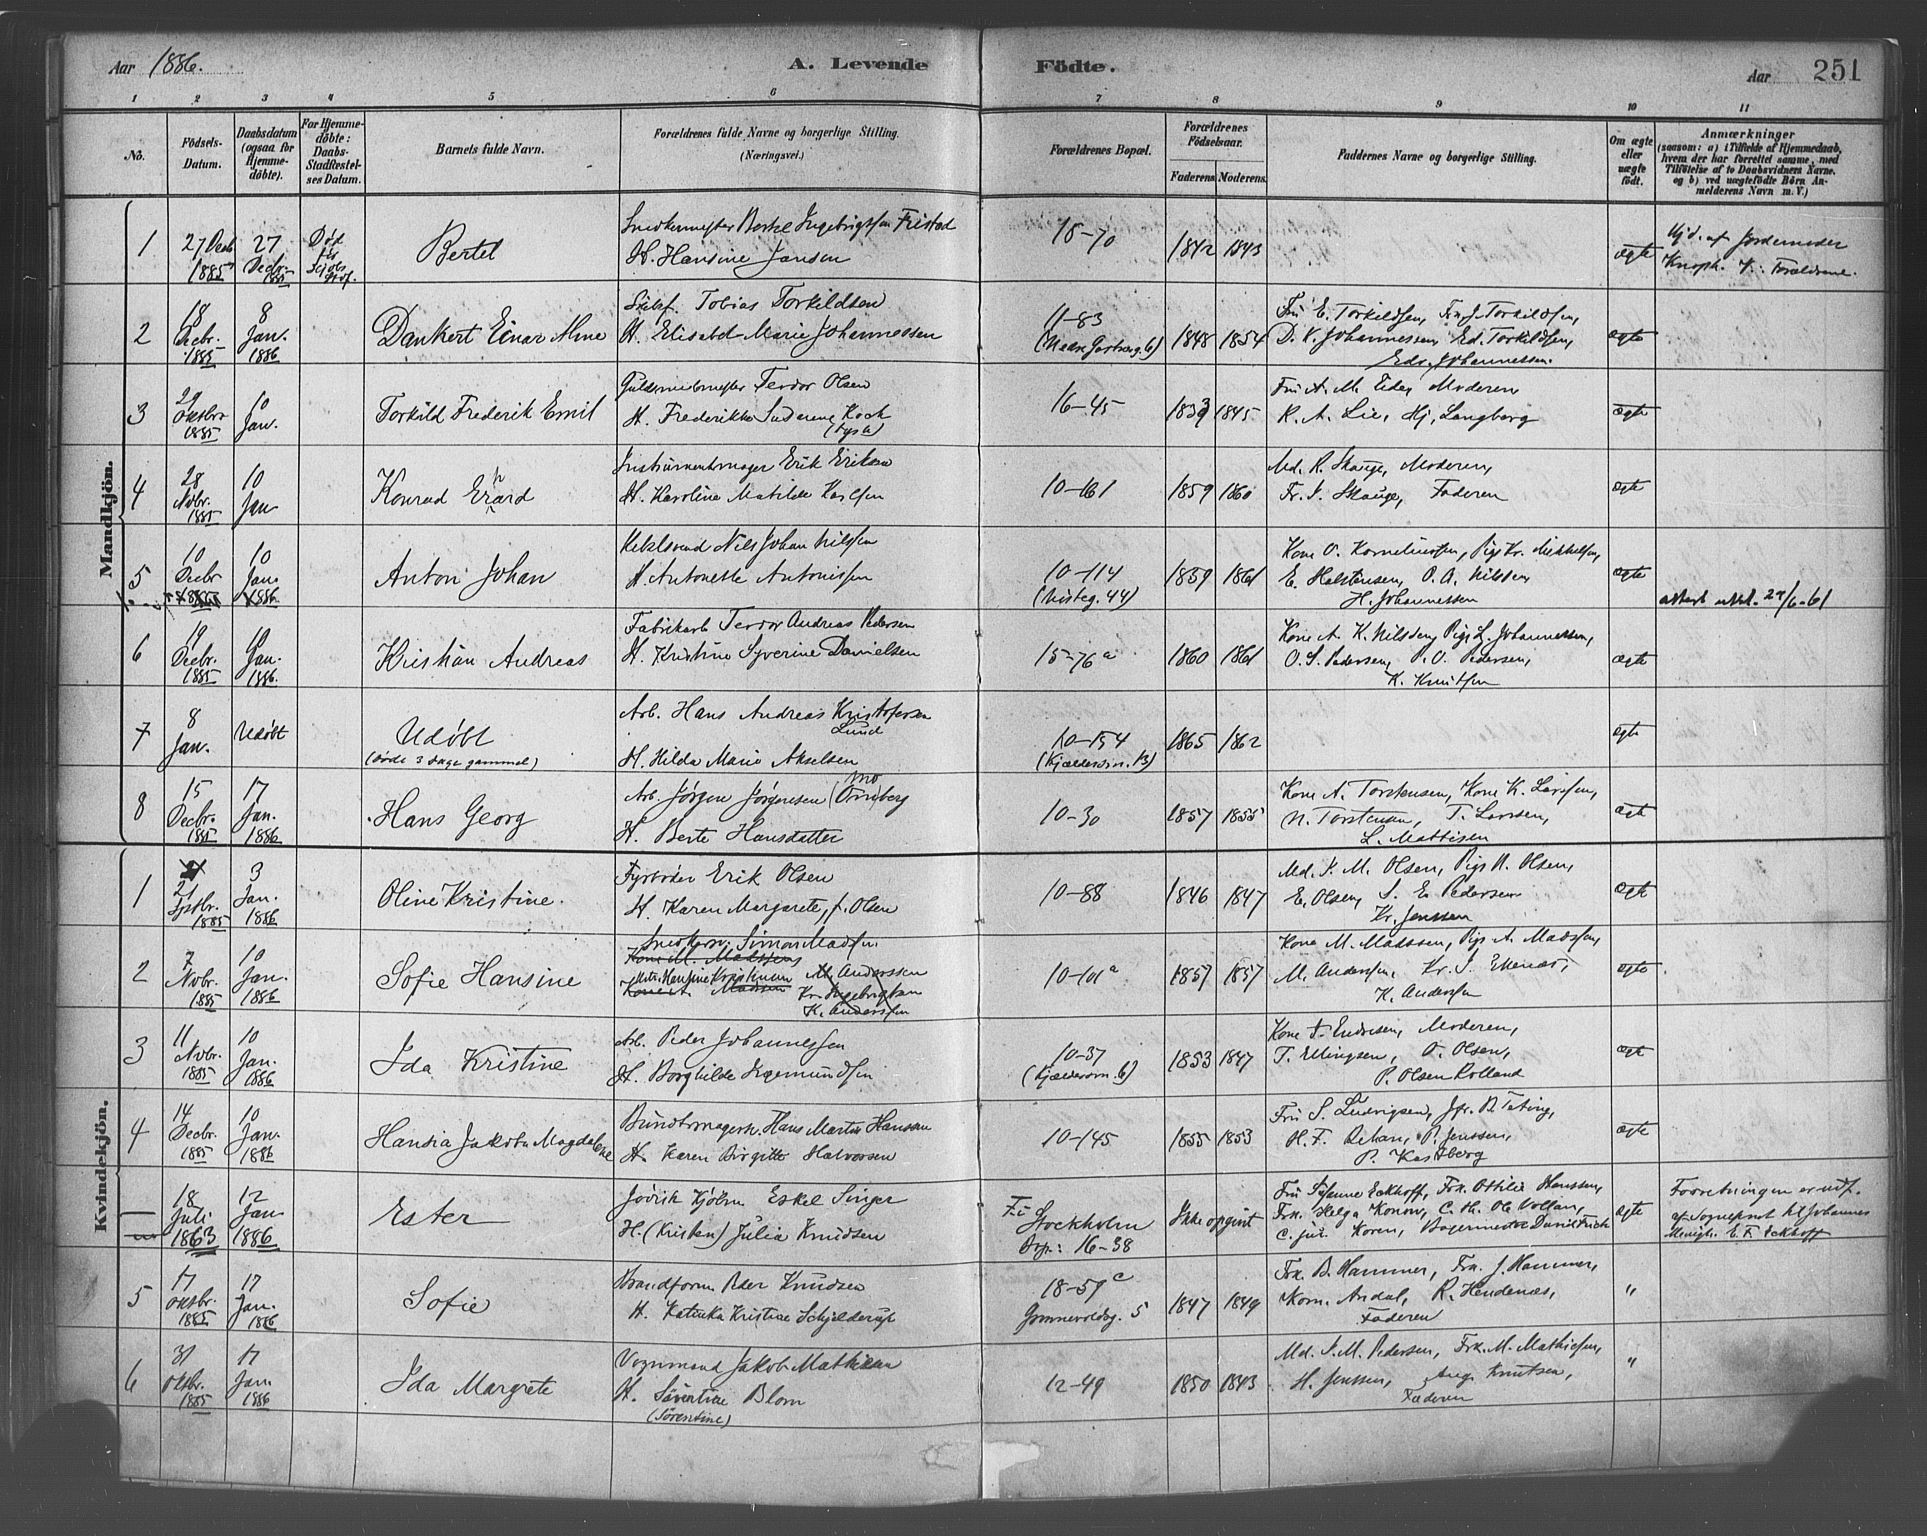 Aar 1886.
A. Levende Födte.
Aar 251
1 2 3 4 5 6 7 8 9 10 11
No.
Födsels-Datum.
Daabsdatum (ogsaa for Hjemme-döbte).
For Hjemme-döbte: Daabs-Stadfestel-ses Datum.
Barnets fulde Navn.
Forældrenes fulde Navne og borgerlige Stilling.
(Næringsvei.)
Forældrenes Bopæl.
Forældrenes Födselsaar.
Faderens Moderens
Faddernes Navne og borgerlige Stilling.
Om ægte eller uægte födt.
Anmærkninger
(saasom: a) i Tilfælde af Hjemmedaab, hvem der har forrettet samme, med Tilföielse af to Daabsvidners Navne. og b) ved uægtefödte Börn An-melderens Navn m. V.)
Mandkjön.
1 27 Decb. 1885 27 Decbr. 1885 Død
Bertel
Ingebrigtsen Fristad
H. Hansine Jansen
18-70 1842 1843 ægte
Hjd. af Jordemoder
2 18 Decbr. 1885 8 Jan. 1886
Dankert Einar Alme
Tobias Torkildsen
H. Elisabet Marie Johannessen
11-83
1848 1854
Fru E. Torkildsen, Frk. J. Torkildsen,
D. K. Johannessen, Ed. Torkildsen,
Edv. Johannessen.
ægte
3 29 Oktbr. 1885 10 Jan.
Torkild Frederik Emil
Guldsmedmester Teodor Olsen
H. Frederikke Koch
16-45 1839 1845
Fru A. M. Moderen
R. A. Lie, Hj. Langberg
ægte
4 28 Nvbr. 1885 10 Jan
Konrad Erhard
Instrumentmager Erik Eriksen
H. Karoline Matilde Karlsen
10-161 1859 1860
Md. R. Skauge, Moderen,
Fr. J. Skauge, Faderen
ægte
5 10 Decbr 1885 10 Jan. 1886
Anton Johan
Nils Johan Nilssen
H. Antonette Antonissen
10-114
44)
1859 1861
Kone O. Korneliussen, Pige Kr. Mikkelsen,
E. Halstensen, P. A. Nilsen
H. Johannessen
ægte
attest utst. 27/6-61
6 19 Decbr. 1885 10 Jan. 1886.
Kristian Andreas
Fabrikarb Teodor Andreas Pedersen
H. Kristine Syverine Danielsen
15-76 a 1860 1861
Kone A. K. Nilsen, Pige L. Johannessen,
O. S. Pedersen, P. O. Pedersen,
K. Knutsen
ægte
7 8 Jan. Udøbt
Udøbt
(døde 3 dage gammel)
Arb. Hans Andreas Kristofersen Lund
H. Hilda Marie Akselsen
10-154
1865 1862 ægte
8 15 Decbr. 1885 17 Jan. 1886
Hans Georg
Arb. Jørgen Jørgensen
H. Berte Hansdatter
10-30 1857 1855
Kone A. Torstensen, Kone K. Larsen,
N. Torstensen, T. Larsen,
L. Mattisen
ægte
Kvindekjön.
1 21 1885 3 Jan. 1886
Oline Kristine.
Fyrbøder Erik Olsen
H. Karen Margarete, f. Olsen
10-88 1846 1847
Md. J. M. Olsen, Pige N. Olsen,
E. Olsen, S. E. Pedersen
Kr. Jenssen
ægte
2 7 Nvbr. 1885 10 Jan. 1886
Sofie Hansine
Snedkersv. Simon Madsen
Kone M. Madssen
H. Hansine Kristensen M. Anderssen
Kone A. Madsen Kr. Ingebrigtsen
K. Anderssen
10-101 a 1857 1857
Kone M. Madssen, Pige A. Madssen,
M. Anderssen, Kr. J.
K. Anderssen
ægte
3 11 Nvbr. 1885 10 Jan. 1886
Ida Kristine
Arb. Peder Johannessen
H. Borghilde Ingemundsen
10-37
1853 1847
Kone Endresen, Moderen,
T. Ellingsen, O. Olsen,
P. Olsen Rolland
ægte
4 14 Decbr. 1885 10 Jan. 1886
Hansia Jakoba Magdalene
Buntmagersv. Hans Martin Hanssen
H. Karen Birgitte Halvorsen
10-145 1855 1853
Fru S. Ludvigsen, Jfr. B. Teting,
H. F. P. Jenssen,
P. Kastberg
ægte
18 Juli 1863 12 Jan 1886
Ester
Eskel Singer
H. (Kristen) Julia Knudsen
Stockholm
16-38
Ikke opgivit
Fru Susanne Eckhoff, Frk. Ottilie Hanssen,
Frk. Helga Konow, C. th. Ole Vollan,
C. jur. Koren, Bagermester David Frich
ægte
Forretningen er udf.
af Sogneprest til Johannes
Menigh. E. F. Eckhoff
5 17 Oktbr. 1885 17 Jan. 1886
Sofie
Peder Knudsen
H. Katinka Kristine Schjelderup
18-59 c
5
1847 1849
Frk. B. Hammer, Frk. J. Hammer,
Korn. Andal, R. Hendenæs,
Faderen
"
6 31 Oktbr. 1885 17 Jan. 1886
Ida Margrete
Vognmand Jakob Mathiesen
H. Sørentine Blom
(Sørentine)
12-49 1850 1843
Md. J. M. Pedersen, Frk. M. Mathiesen,
H. Jenssen, Aug. Knutsen,
Faderen
"